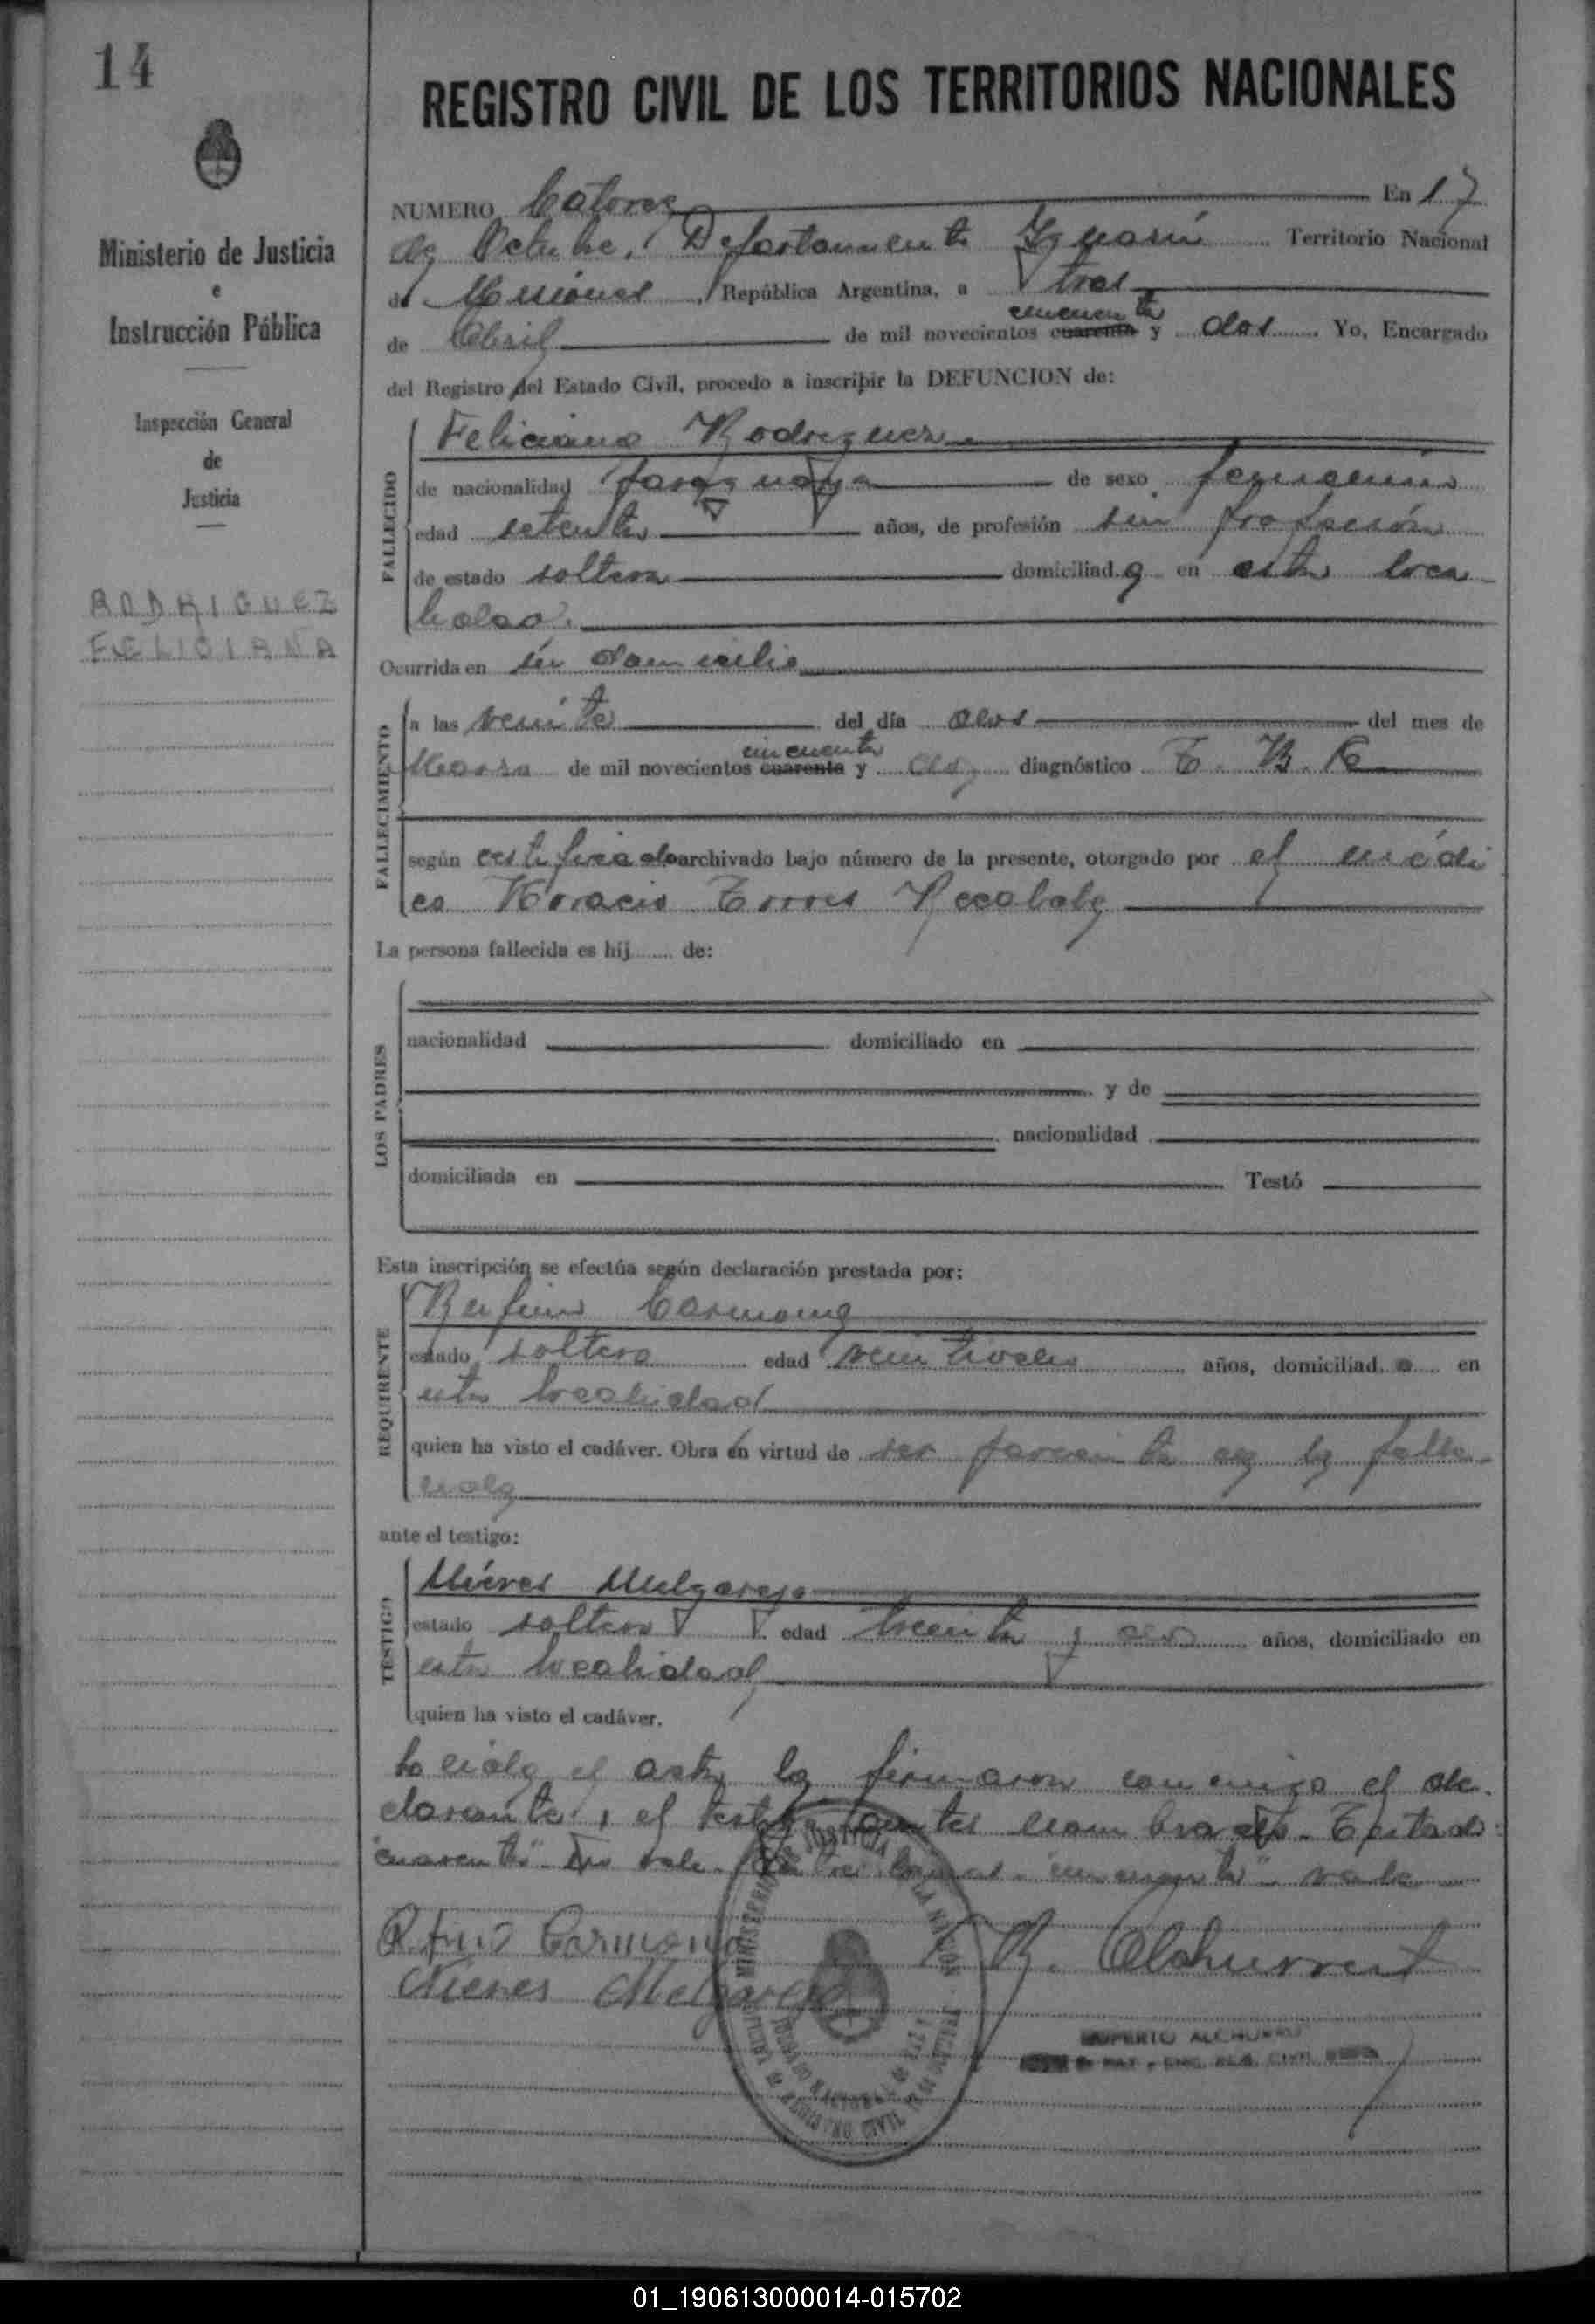 14
REGISTRO CIVIL DE LOS TERRITORIOS NACIONALES
Ministerio de Justicia
e
Instrucción Pública
Inspección General
de
Justicia
RODRIGUEZ
FELICIANA
NUMERO Catorce En 17
de Octubre, Departamento Iguazú Territorio Nacional
de Misiones, República Argentina, a tres
cincuenta
de Abril de mil novecientos cuarenta y dos Yo, Encargado
del Registro del Estado Civil, procedo a inscribir la DEFUNCION de:
FALLECIDO
Feliciana Rodriguez
de nacionalidad paraguaya de sexo femenino
edad setenta años, de profesión sin profesión
de estado soltera domiciliad a en esta loca
lidad.
Ocurrida en su domicilio
FALLECIMIENTO
a las veinte del día dos del mes de
cincuenta
Marzo de mil novecientos cuarenta y dos diagnóstico T. B. C.
según certificado archivado bajo número de la presente, otorgado por el médi
co Horacio Torres Recabale
La persona fallecida es hij de:
LOS PADRES
nacionalidad domiciliado en
y de
nacionalidad
domiciliada en Testó
Esta inscripción se efectúa según declaración prestada por:
REQUIRENTE
Rufino Carmona
estado soltero edad años, domiciliad o en
esta localidad
quien ha visto el cadáver. Obra en virtud de ser pariente de la falle
cida
ante el testigo:
TESTIGO
Nieves Melgarejo
estado soltero edad treinta y dos años, domiciliado en
esta localidad
quien ha visto el cadáver.
Leida el acta la firmaron conmigo el de
clarante y el testigo antes nombrados. Testado:
"cuarenta" No vale. Entre lineas "cincuenta" vale
Rufino Carmona R. Alchurrut
Nieves Melgarejo
MINISTERIO DE JUSTICIA DE LA NACION
REGISTRO CIVIL
01_190613000014-015702